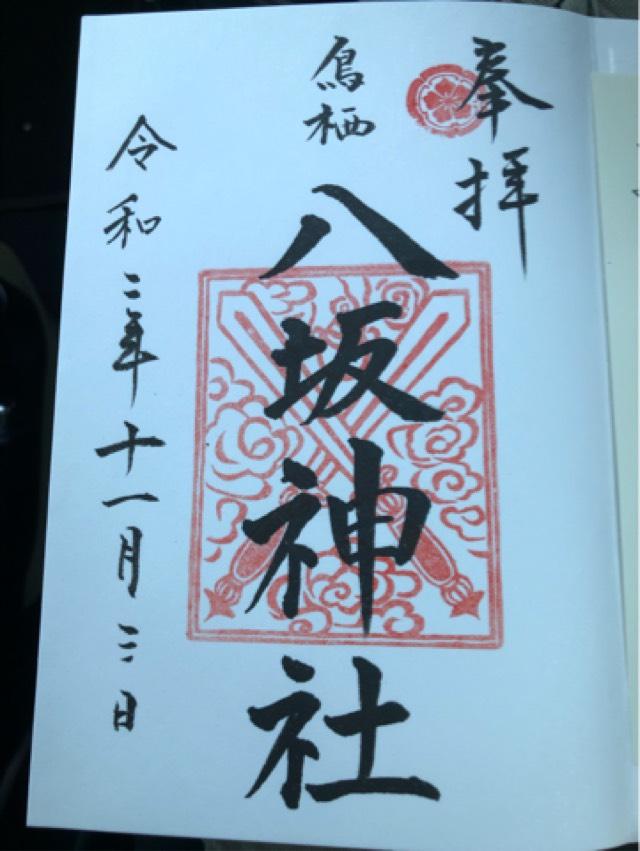 奉拝
鳥栖
八坂神社
令和二年十一月三日